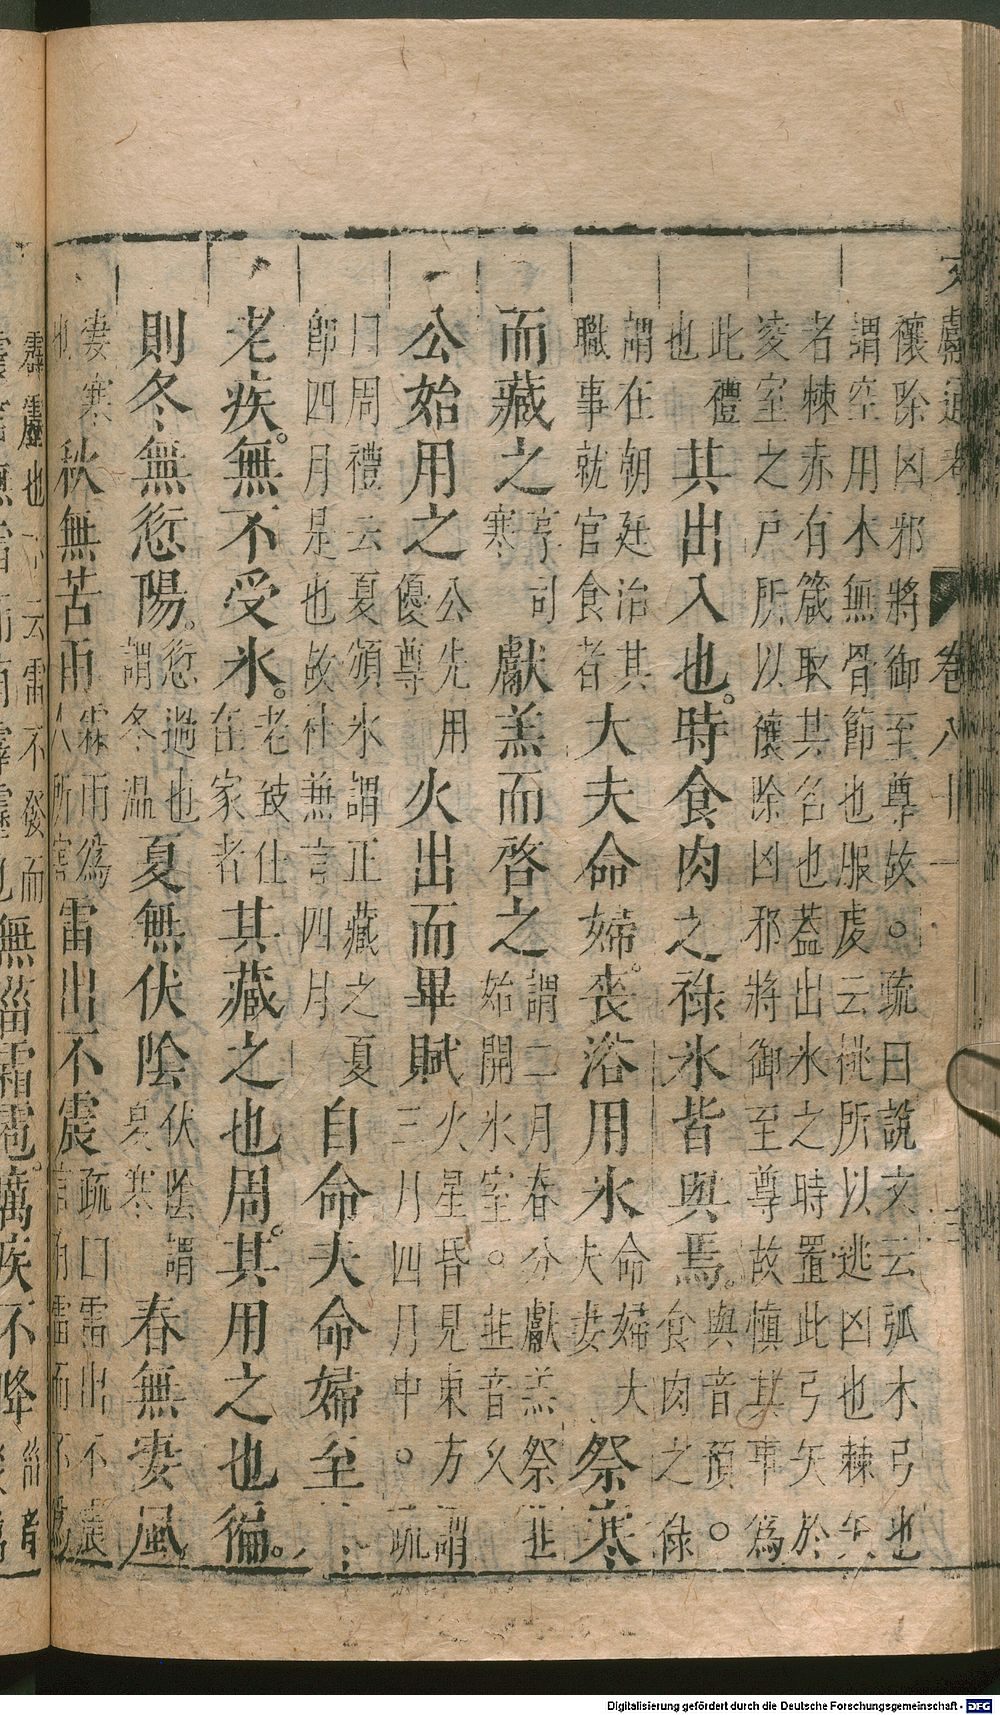 禳除凶邪將御至尊故○疏曰說文云弧木弓也
謂空用木無骨節也服虔云桃所以逃凶也棘矢
者棘赤有箴取其名也蓋出氷之時置此弓矢於
凌室之戸所以禳除凶邪將御至尊故愼其事爲
此禮
也
其出入也時食肉之祿氷皆與焉
與音預○
食肉之祿
謂在朝廷治其
職事就官食者
大夫命婦喪浴用氷
命婦大
夫妻
祭寒
而藏之
享司
寒
獻羔而啓之
謂二月春分獻羔祭韭
始開氷室○韭音久
公始用之
公先用
優尊
火出而畢賦
火星昏見東方謂
三月四月中○疏
曰周禮云夏頒氷謂正藏之夏
卽四月是也故社無言四月
自命夫命婦至
老疾無不受氷
老致仕
在家者
其藏之也周其用之也徧
則冬無愆陽
愆過也
謂冬溫
夏無伏陰
伏陰謂
夏寒
春無凄風
凄寒
也
秋無苦雨
霖雨爲
人所害
雷出不震
疏曰雷出不震
言有雷而不爲
霹靂也
云雷不發而
無菑霜雹癘疾不降
菑音
卷八十一
Digitalisierung gefördert durch die Deutsche Forschungsgemeinschaft - DFG